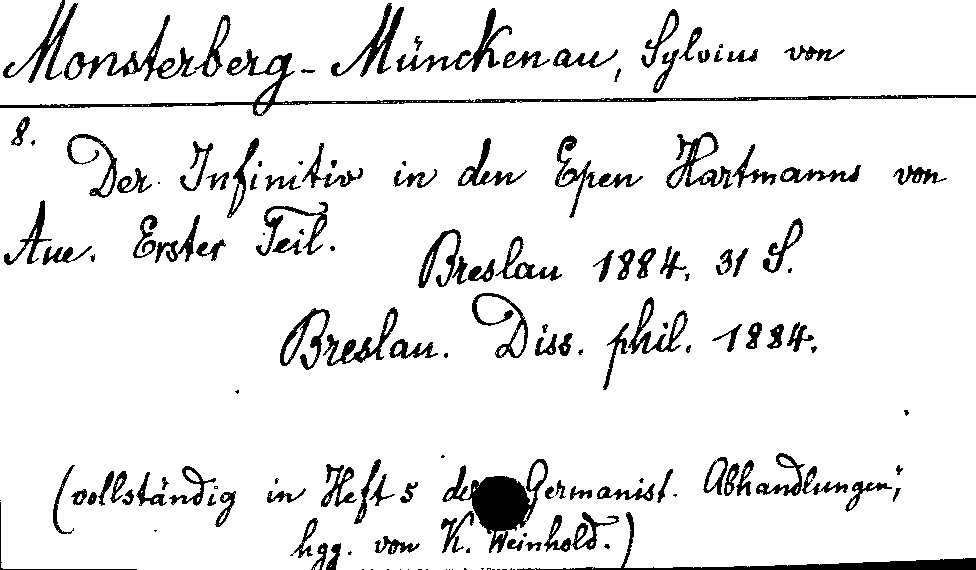 Monsterberg-Münckenau, Sylvius von
8.
Der Infinitiv in den Epen Hartmanns von
Aue. Erster Teil.
Breslau 1884. 31 S.
Breslau. Diss. phil. 1884.
(vollständig in Heft 5 der „Germanist. Abhandlungen",
hgg. von K. Weinhold.)